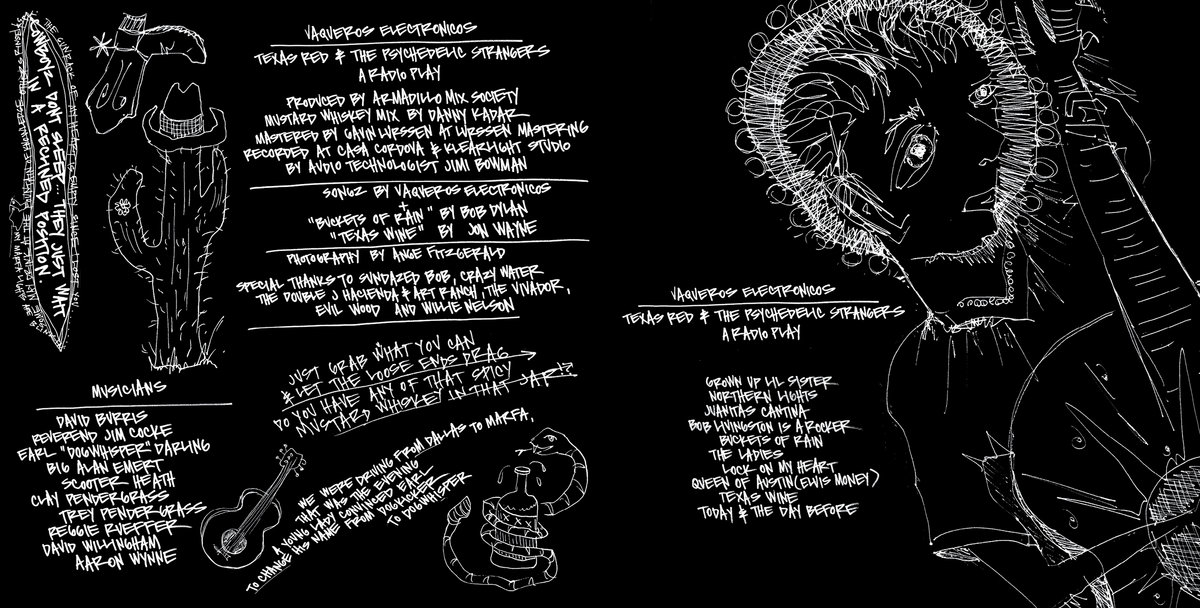 COWBOYS DON'T SLEEP... THEY JUST WAIT
IN A RECLINED POSITION.
VAQUEROS ELECTRONICOS
TEXAS RED & THE PSYCHEDELIC STRANGERS
A RADIO PLAY
PRODUCED BY ARMADILLO MIX SOCIETY
MUSTARD WHISKEY MIX BY DANNY KADAR
MASTERED BY GAVIN LURSSEN AT LURSSEN MASTERING
RECORDED AT CASA CORDOVA & KLEARLIGHT STUDIO
BY AUDIO TECHNOLOGIST JIMI BOWMAN
SONGZ BY VAQUEROS ELECTRONICOS
+
"BUCKETS OF RAIN" BY BOB DYLAN
"TEXAS WINE" BY JON WAYNE
PHOTOGRAPHY BY ANGE FITZGERALD
SPECIAL THANKS TO SUNDAZED BOB, CRAZY WATER
THE DOUBLE J HACIENDA & ART RANCH, THE VIVADOR,
EVIL WOOD AND WILLIE NELSON
JUST GRAB WHAT YOU CAN
& LET THE LOOSE ENDS DRAG
DO YOU HAVE ANY OF THAT SPICY
MUSTARD WHISKEY IN THAT JAR!?
MUSICIANS
DAVID BURRIS
REVEREND JIM COCKE
EARL "DOGWHISPER" DARLING
BIG ALAN EMERT
SCOOTER HEATH
CLAY PENDERGRASS
TREY PENDERGRASS
REGGIE RUEFFER
DAVID WILLINGHAM
AARON WYNNE
WE WERE DRIVING FROM DALLAS TO MARFA,
THAT WAS THE EVENING
A YOUNG LADY CONVINCED EARL
TO CHANGE HIS NAME FROM DOGKICKER
TO DOGWHISPER
XXX
VAQUEROS ELECTRONICOS
TEXAS RED & THE PSYCHEDELIC STRANGERS
A RADIO PLAY
GROWN UP LIL SISTER
NORTHERN LIGHTS
JUANITAS CANTINA
BOB LIVINGSTON IS A ROCKER
BUCKETS OF RAIN
THE LADIES
LOCK ON MY HEART
QUEEN OF AUSTIN (ELVIS MONEY)
TEXAS WINE
TODAY & THE DAY BEFORE